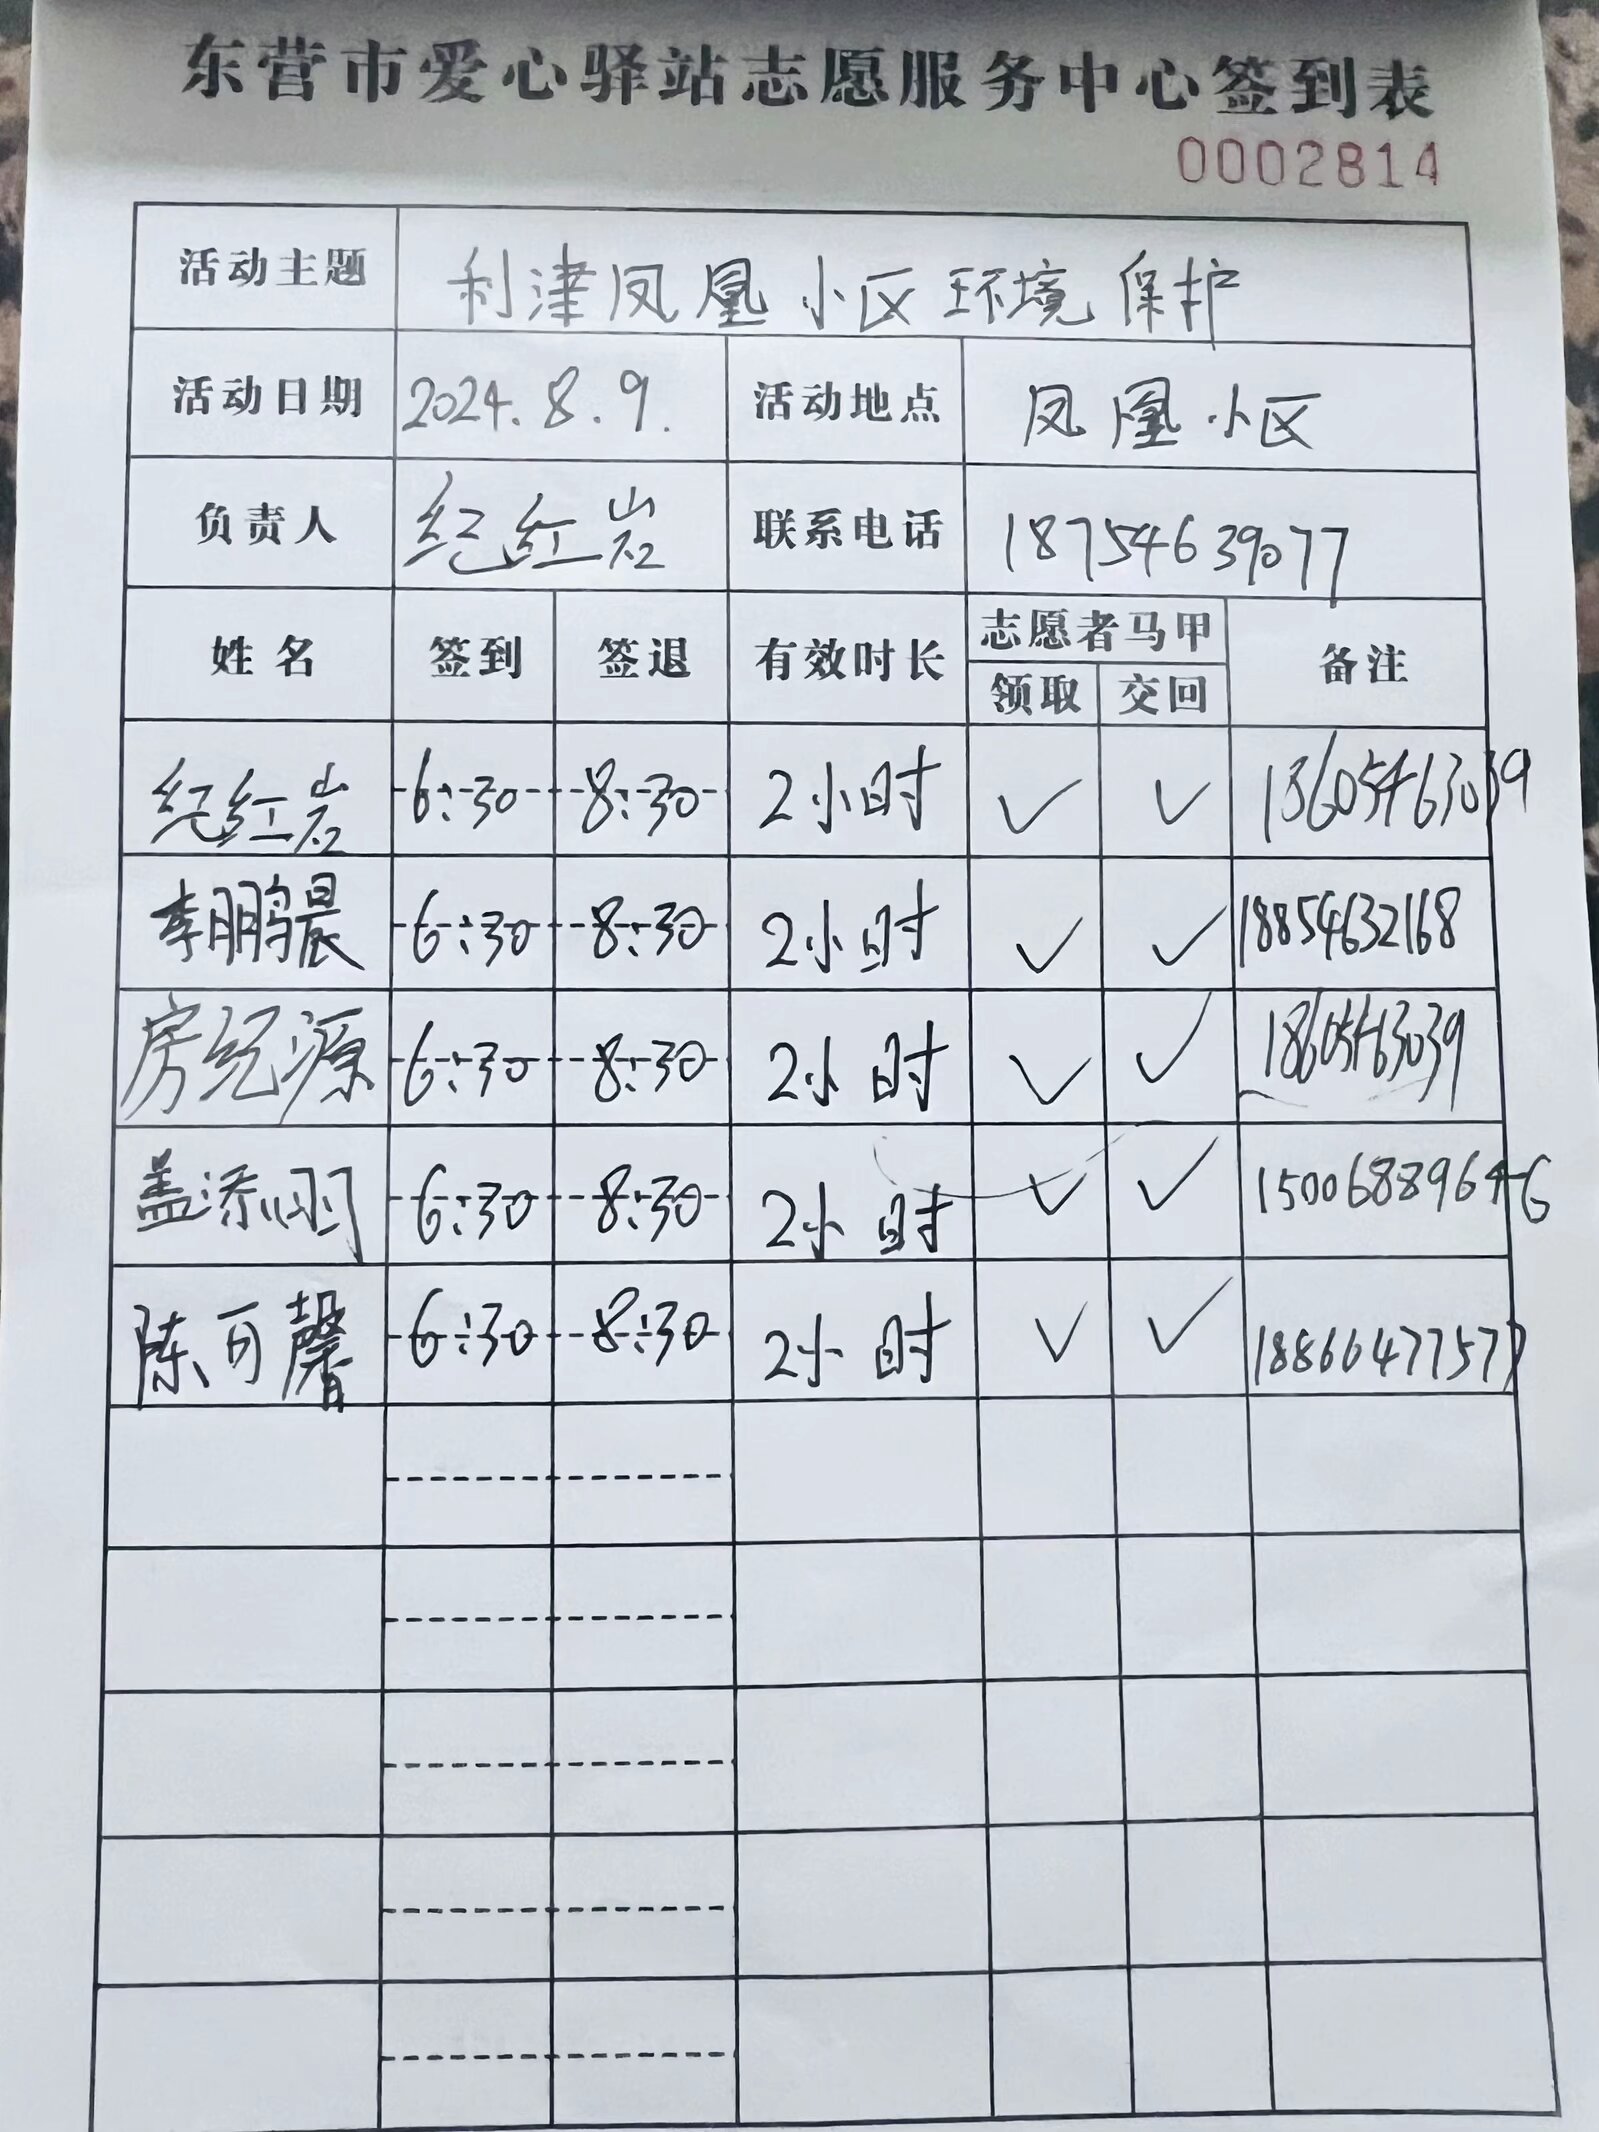 东营市爱心驿站志愿服务中心签到表
0002814
活动主题 利津凤凰小区环境保护
活动日期 2024.8.9. 活动地点 凤凰小区
负责人 纪红岩 联系电话 18754639077
姓名 签到 签退 有效时长 志愿者马甲 备注
领取 交回
纪红岩 6:30 8:30 2小时 ✓ ✓ 13605463039
李鹏晨 6:30 8:30 2小时 ✓ ✓ 18854632168
房纪源 6:30 8:30 2小时 ✓ ✓ 18605463039
盖添羽 6:30 8:30 2小时 ✓ ✓ 15006889646
陈可馨 6:30 8:30 2小时 ✓ ✓ 18866477577